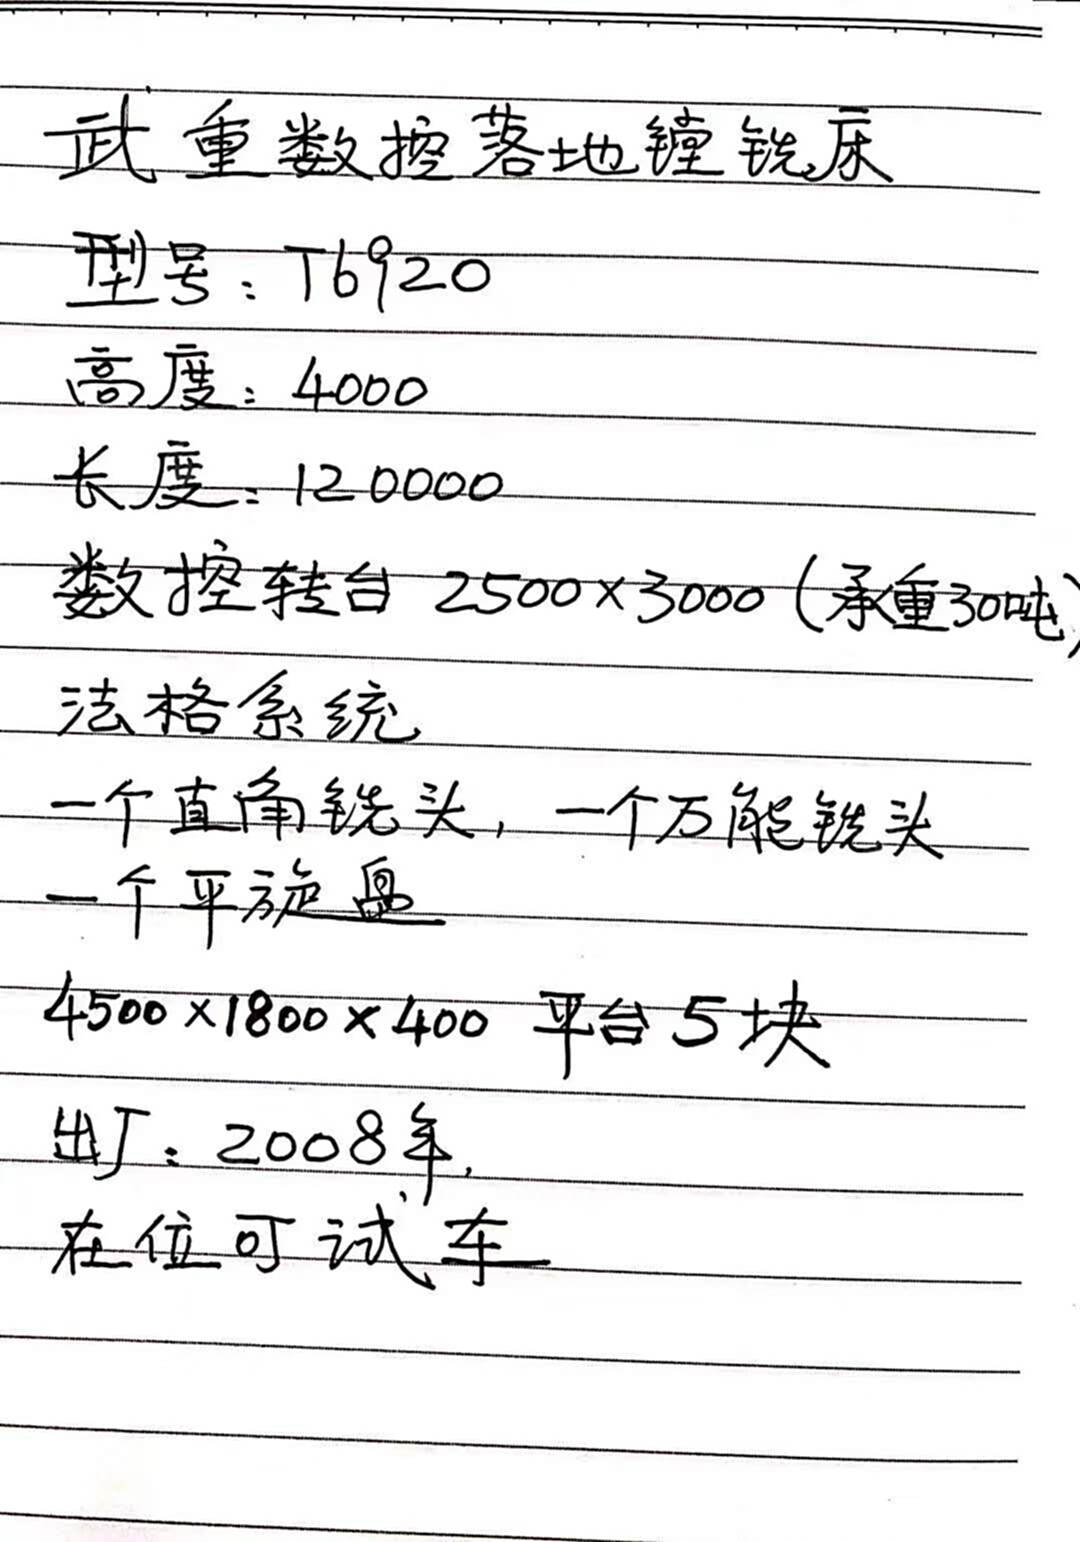 武重数控落地镗铣床
型号：T6920
高度：4000
长度：120000
数控转台 2500×3000（承重30吨）
法格系统
一个直角铣头，一个万能铣头
一个平旋盘
4500×1800×400 平台5块
出厂：2008年，
在位可试车